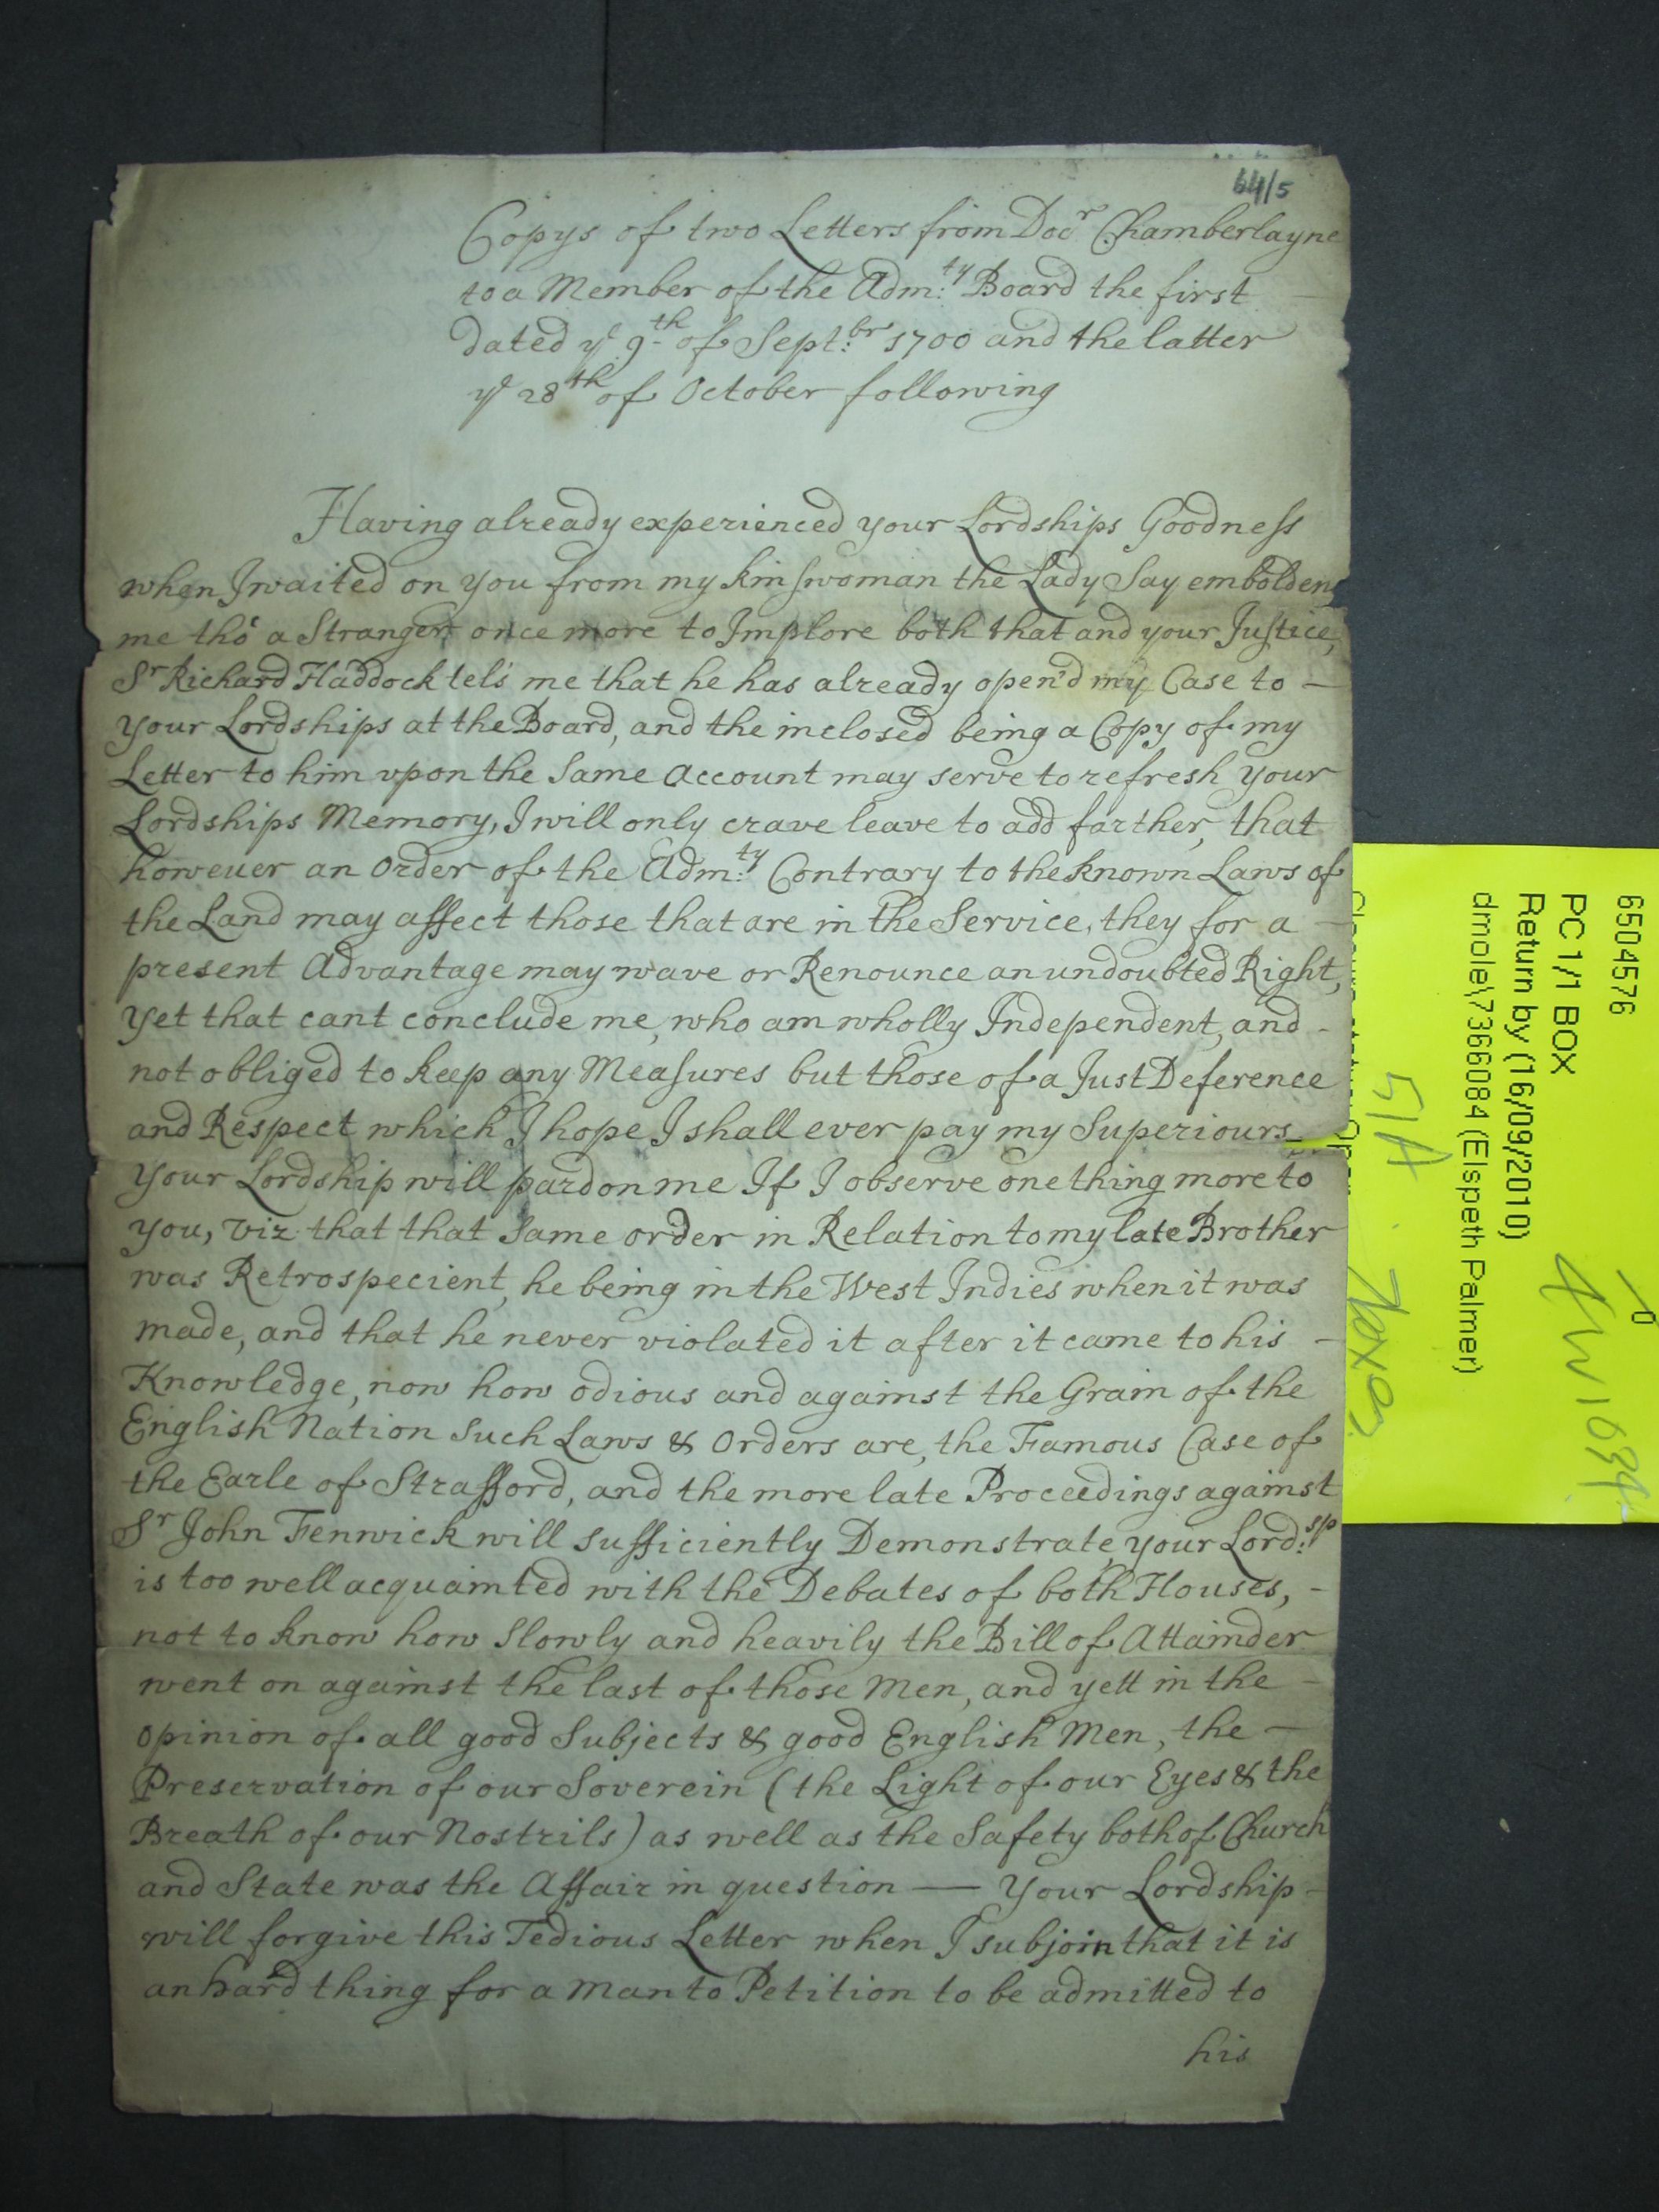 64/5
Copys of two Letters from Docr Chamberlayne
to a Member of the Adm:ty Board the first
dated ye 9th of Sept:br 1700 and the latter
ye 28th of October following
Having already experienced your Lordships Goodness
when I waited on you from my kinswoman the Lady Say emboldens
me tho' a Stranger once more to Implore both that and your Justice,
Sr Richard Haddock tels me that he has already open'd my Case to —
your Lordships at the Board, and the inclosed being a Copy of my
Letter to him vpon the same Account may serve to refresh your
Lordships Memory, I will only crave leave to add farther, that
however an Order of the Adm:ty Contrary to the known Laws of
the Land may affect those that are in the Service, they for a —
present Advantage may wave or Renounce an undoubted Right,
yet that cant conclude me, who am wholly Independent, and -
not obliged to keep any Measures but those of a Just Deference
and Respect which I hope I shall ever pay my Superiours
Your Lordship will pardon me If I observe one thing more to
you, viz. that that same order in Relation to my late Brother
was Retrospecient, he being in the West Indies when it was
made, and that he never violated it after it came to his -
Knowledge, now how odious and against the Grain of the
English Nation such Laws & Orders are, the Famous Case of
the Earle of Strafford, and the more late Proceedings against
Sr John Fenwick will sufficiently Demonstrate, your Lord:sp
is too well acquainted with the Debates of both Houses, -
not to know how slowly and heavily the Bill of Attainder
went on against the last of those Men, and yett in the -
opinion of all good Subjects & good English Men, the —
Preservation of our Soverein (the Light of our Eyes & the
Breath of our Nostrils) as well as the Safety both of Church
and State was the Affair in question — Your Lordship -
will forgive this Tedious Letter when I subjoin that it is
an hard thing for a Man to Petition to be admitted to
his
6504576
PC 1/1 BOX
Return by (16/09/2010)
dmole\7366084 (Elspeth Palmer)
51A